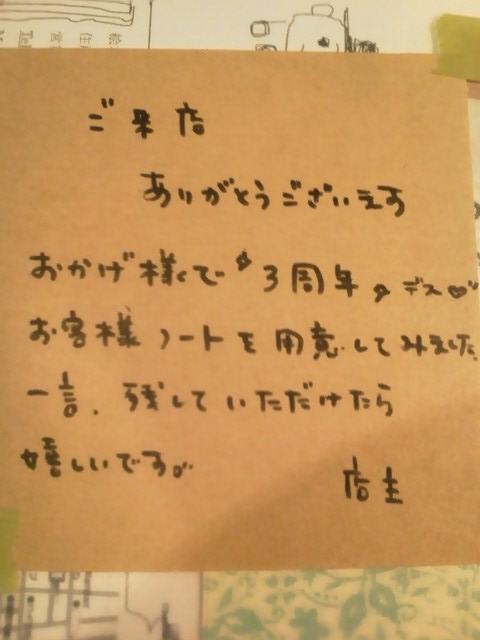 ご来店
ありがとうございます
おかげ様で☆3周年☆デス♡
お客様ノートを用意してみました
一言、残していただけたら
嬉しいです。
店主